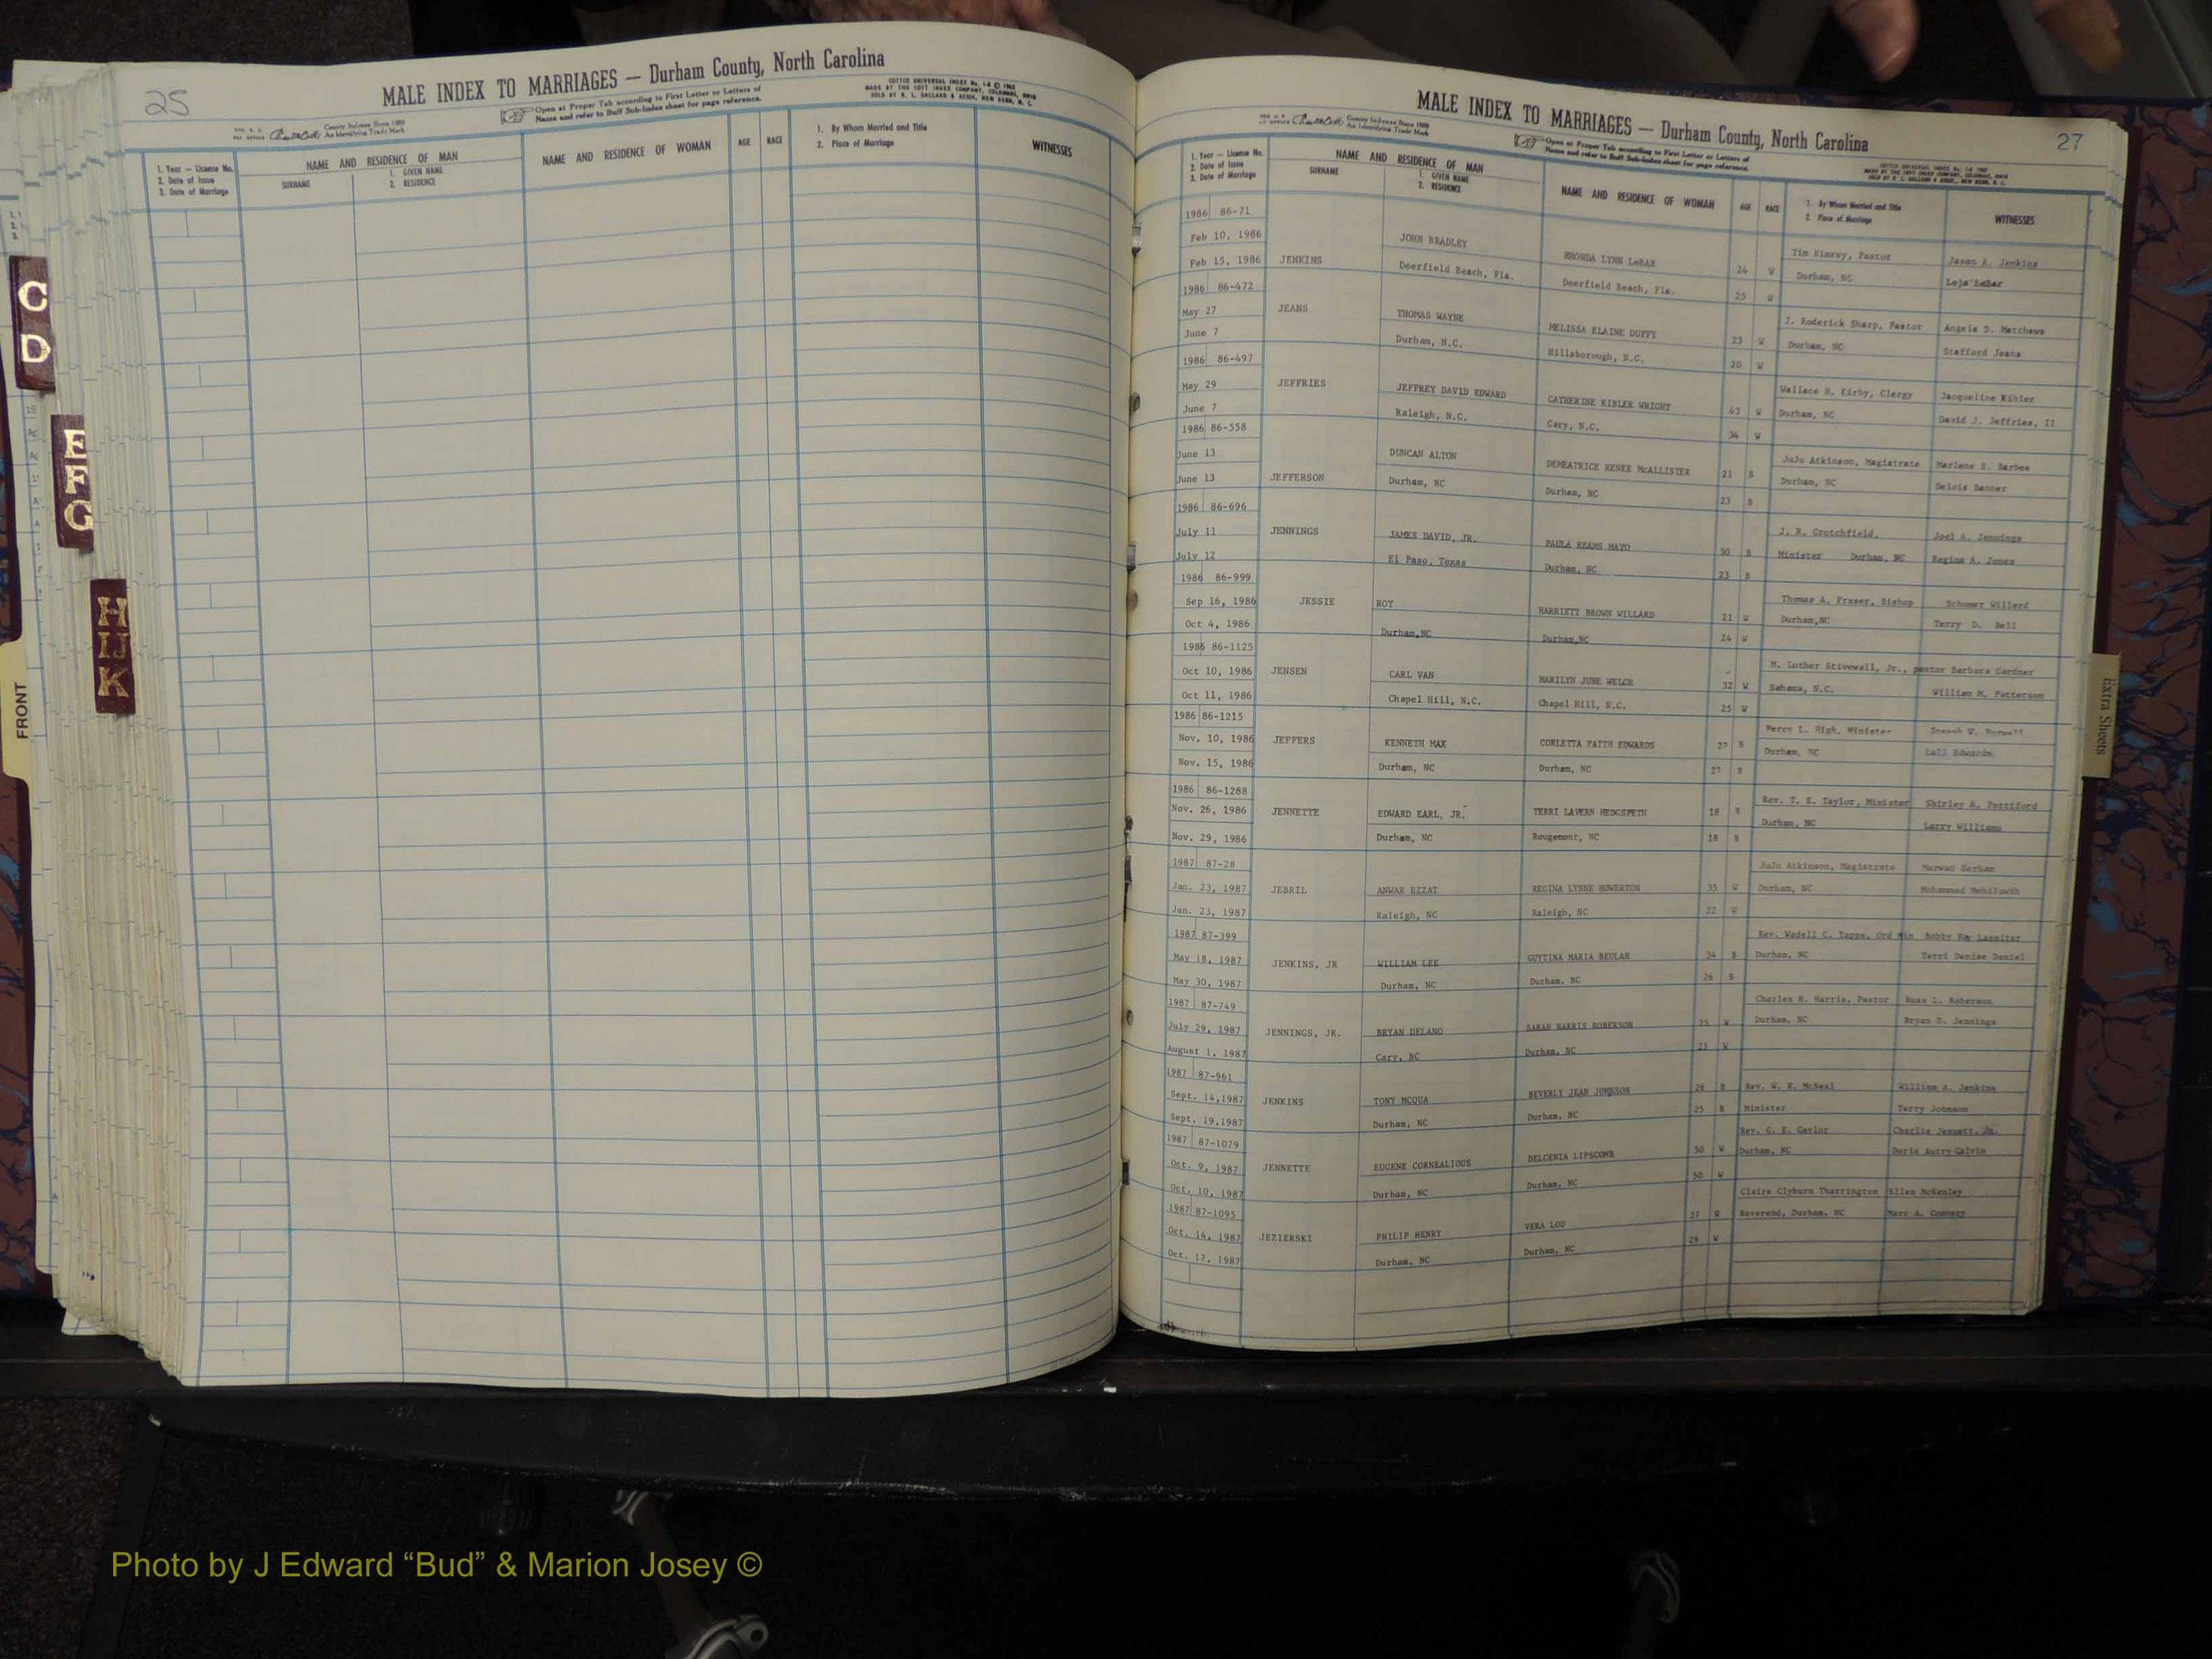 25
MALE INDEX TO MARRIAGES — Durham County, North Carolina
Open at Proper Tab according to First Letter or Letters of
Name and refer to Buff Sub-Index sheet for page reference.
COTTCO UNIVERSAL INDEX
MADE BY THE COTT INDEX COMPANY, COLUMBUS, OHIO
County Indexes Since 1888
An Identifying Trade Mark
1. Year — License No.
2. Date of Issue
3. Date of Marriage
NAME AND RESIDENCE OF MAN
SURNAME
1. GIVEN NAME
2. RESIDENCE
NAME AND RESIDENCE OF WOMAN
AGE
RACE
1. By Whom Married and Title
2. Place of Marriage
WITNESSES
C
D
E
F
G
H
IJ
K
FRONT
27
MALE INDEX TO MARRIAGES — Durham County, North Carolina
County Indexes Since 1888
An Identifying Trade Mark
Open at Proper Tab according to First Letter or Letters of
Name and refer to Buff Sub-Index sheet for page reference.
1. Year — License No.
2. Date of Issue
3. Date of Marriage
NAME AND RESIDENCE OF MAN
SURNAME
1. GIVEN NAME
2. RESIDENCE
NAME AND RESIDENCE OF WOMAN
AGE
RACE
1. By Whom Married and Title
2. Place of Marriage
WITNESSES
1986 86-71
Feb 10, 1986 JOHN BRADLEY RHONDA LYNN LeBAR 24 W Tim Kimrey, Pastor Jason A. Jenkins
Feb 15, 1986 JENKINS Deerfield Beach, Fla. Deerfield Beach, Fla. 25 W Durham, NC LeBar
1986 86-472
May 27 JEANS THOMAS WAYNE MELISSA ELAINE DUFFY 23 W J. Roderick Sharp, Pastor Angela D. Matthews
June 7 Durham, N.C. Hillsborough, N.C. 20 W Durham, NC Stafford Jeans
1986 86-497
May 29 JEFFRIES JEFFREY DAVID EDWARD CATHERINE KIBLER WRIGHT 43 W Wallace H. Kirby, Clergy Jacqueline Kibler
June 7 Raleigh, N.C. Cary, N.C. 34 W Durham, NC David J. Jeffries, II
1986 86-558
June 13 DUNCAN ALTON DEMEATRICE RENEE McALLISTER 21 B JuJu Atkinson, Magistrate Marlene S. Barbee
June 13 JEFFERSON Durham, NC Durham, NC 23 B Durham, NC Delois Banner
1986 86-696
July 11 JENNINGS JAMES DAVID, JR. PAULA REAMS MAYO 30 B J. R. Crutchfield, Joel A. Jennings
July 12 El Paso, Texas Durham, NC 23 B Minister Durham, NC Regina A. Jones
1986 86-999
Sep 16, 1986 JESSIE ROY HARRIETT BROWN WILLARD 21 W Thomas A. Fraser, Bishop Willard
Oct 4, 1986 Durham,NC Durham,NC 24 W Durham,NC Terry D. Bell
1986 86-1125
Oct 10, 1986 JENSEN CARL VAN MARILYN JUNE WELCH 32 W M. Luther Stivewall, Jr., pastor Barbara Gardner
Oct 11, 1986 Chapel Hill, N.C. Chapel Hill, N.C. 25 W Bahama, N.C. William M. Patterson
1986 86-1215
Nov. 10, 1986 JEFFERS KENNETH MAX CORLETTA FAITH EDWARDS 27 B Percy L. High, Minister Joseph W.
Nov. 15, 1986 Durham, NC Durham, NC 27 B Durham, NC Edwards
1986 86-1288
Nov. 26, 1986 JENNETTE EDWARD EARL, JR. TERRI LAVERN HEDGSPETH 18 B Rev. T. E. Taylor, Minister Shirley A. Pettiford
Nov. 29, 1986 Durham, NC Rougemont, NC 18 B Durham, NC Larry Williams
1987 87-28
Jan. 23, 1987 JEBRIL ANWAR EZZAT REGINA LYNNE HOWERTON 33 W JuJu Atkinson, Magistrate Marwan
Jan. 23, 1987 Raleigh, NC Raleigh, NC 22 W Durham, NC Mohammad
1987 87-399
May 18, 1987 JENKINS, JR WILLIAM LEE GUYTINA MARIA BEULAH 34 B Rev. Wadell C. Tapps, Ord Min Bobby Ray Lassiter
May 30, 1987 Durham, NC Durham, NC 26 B Durham, NC Terri Denise Daniel
1987 87-749
July 29, 1987 JENNINGS, JR. BRYAN DELANO SARAH HARRIS ROBERSON 25 W Charles H. Harris, Pastor Russ L. Roberson
August 1, 1987 Cary, NC Durham, NC 23 W Durham, NC Bryan D. Jennings
1987 87-961
Sept. 14,1987 JENKINS TONY MCQUA BEVERLY JEAN JOHNSON 26 B Rev. W. R. McNeal William A. Jenkins
Sept. 19,1987 Durham, NC Durham, NC 25 B Minister Terry Johnson
1987 87-1079
Oct. 9, 1987 JENNETTE EUGENE CORNEALIOUS DELCENIA LIPSCOMB 50 W Rev. G. E. Gaylor Charlie Jennett, Jr.
Oct. 10, 1987 Durham, NC Durham, NC 50 W Durham, NC Doris Autry Calvin
1987 87-1095
Oct. 14, 1987 JEZIERSKI PHILIP HENRY VERA LOU 27 W Claire Clyburn Tharrington Ellen McKenley
Oct. 17, 1987 Durham, NC Durham, NC 29 W Reverend, Durham, NC Marc A.
Extra Sheets
Photo by J Edward “Bud” & Marion Josey ©